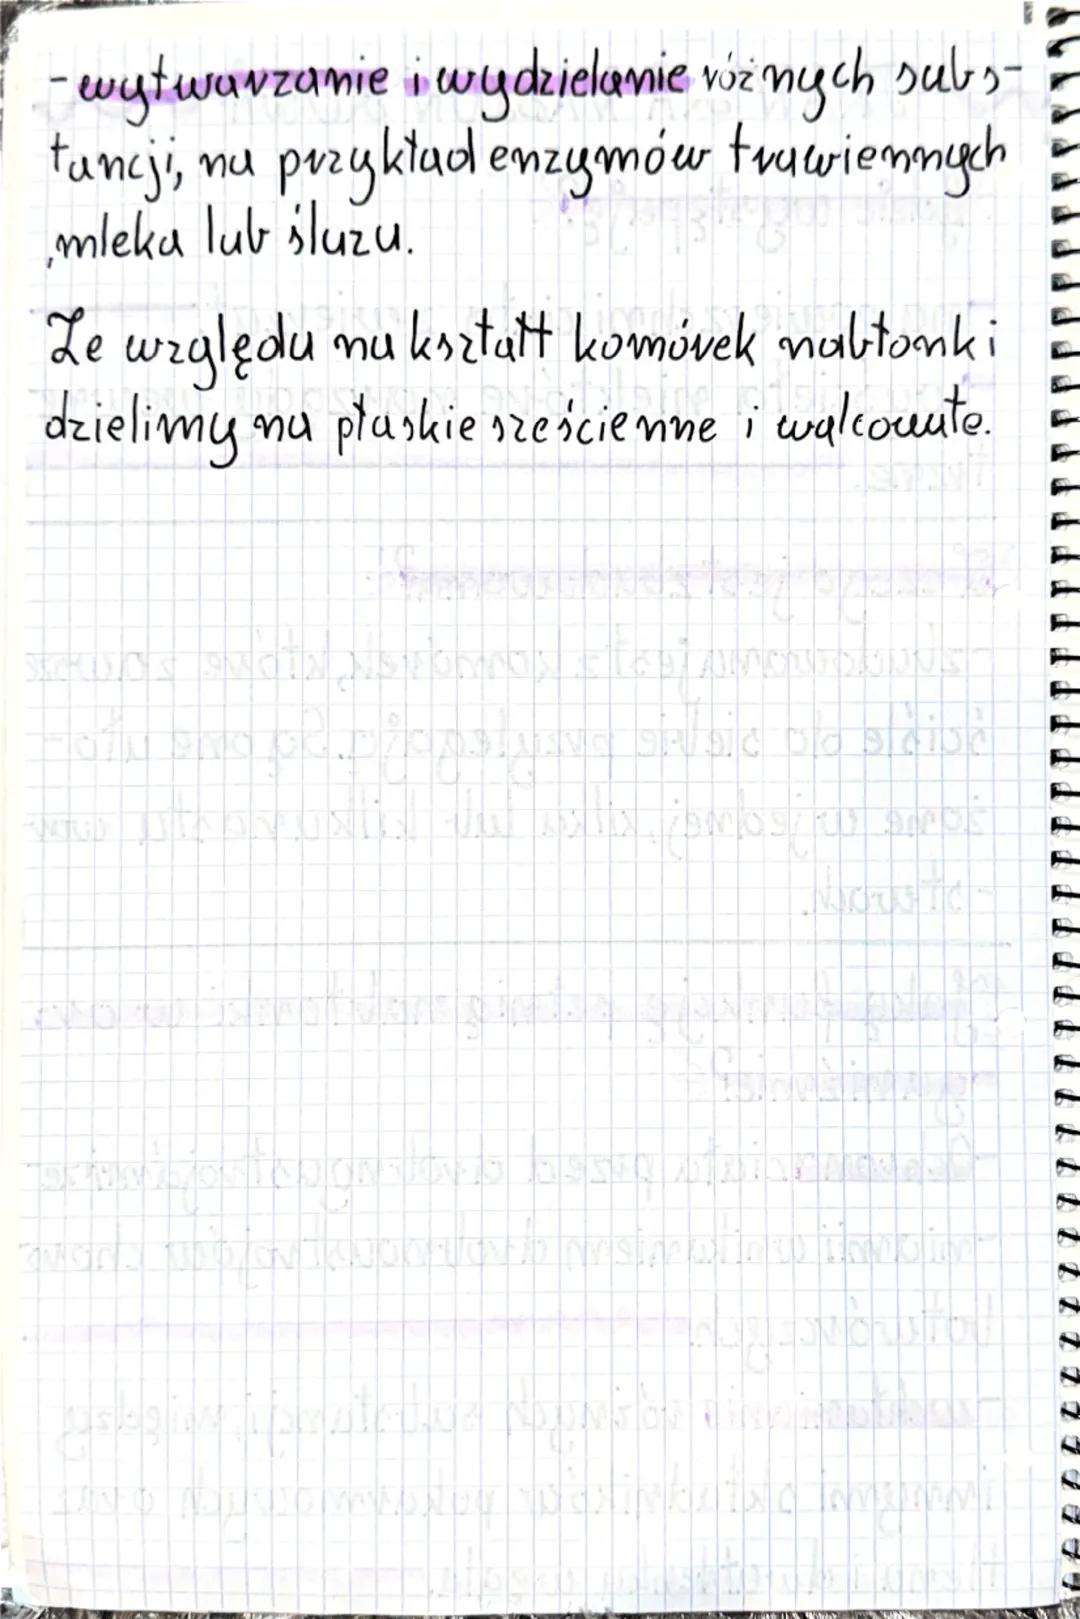 - wytwarzanie i wydzielanie różnych subs-
tancji, na przykład enzymów trawiennych
,mleka lub śluzu.
Ze względu na kształt komórek nabłonki
dzielimy na płaskie sześcienne i walcowate.